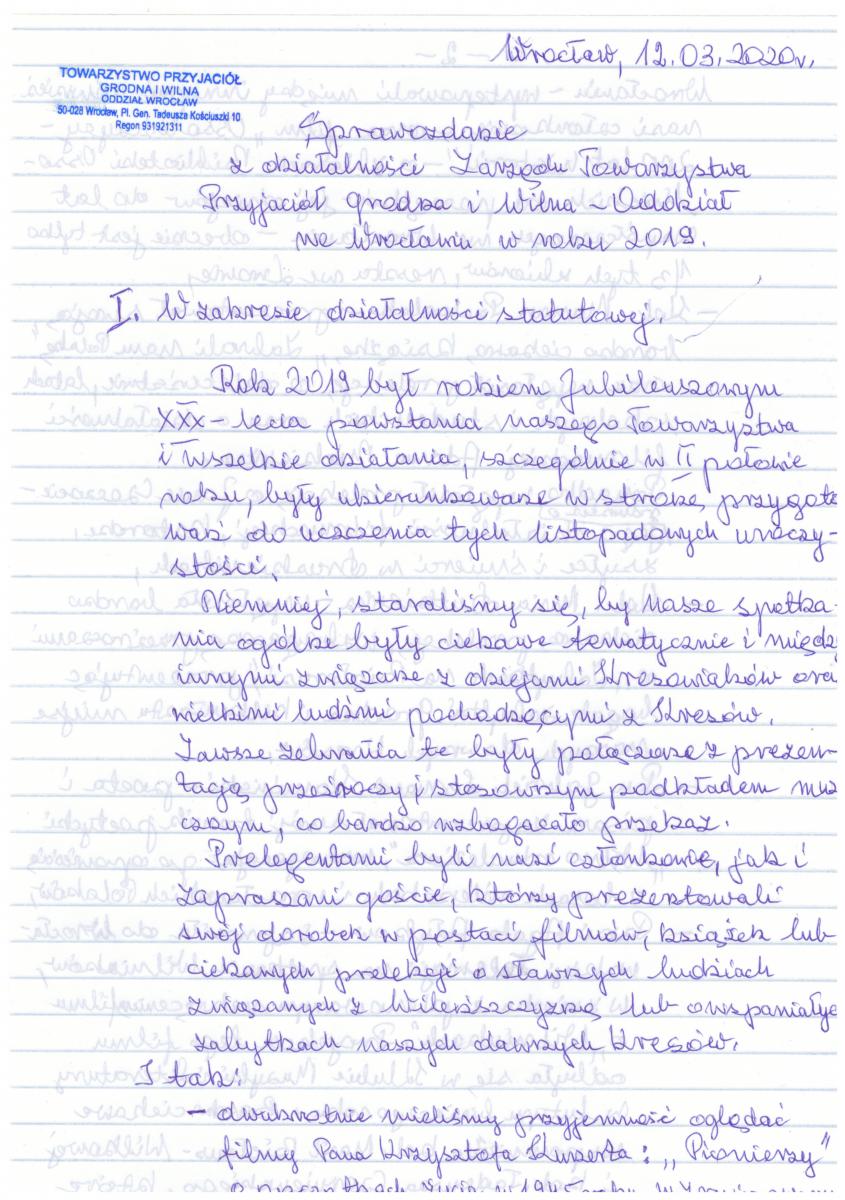 Wrocław, 12.03.2020r.
TOWARZYSTWO PRZYJACIÓŁ
GRODNA I WILNA
ODDZIAŁ WROCŁAW
50-028 Wrocław, Pl. Gen. Tadeusza Kościuszki 10
Regon 931921311
Sprawozdanie
z działalności Zarządu Towarzystwa
Przyjaciół Grodna i Wilna – Oddział
we Wrocławiu w roku 2019.
I. W zakresie działalności statutowej.
Rok 2019 był rokiem Jubileuszowym
XXX-lecia powstania naszego Towarzystwa
i wszelkie działania, szczególnie w II połowie
roku, były ukierunkowane w stronę przygoto
wań do uczczenia tych listopadowych uroczy-
stości.
Niemniej, staraliśmy się, by nasze spotka-
nia ogólne były ciekawe tematycznie i międz
innymi związane z dziejami Kresowiaków ora
wielkimi ludźmi pochodzącymi z Kresów.
Zawsze zebrania te były połączone z prezen-
tacją przeźroczy i stosownym podkładem muz
cznym, co bardzo wzbogacało przekaz.
Prelegentami byli nasi członkowie, jak i
zapraszani goście, którzy prezentowali
swój dorobek w postaci filmów, książek lub
ciekawych prelekcji o sławnych ludziach
związanych z Wileńszczyzną lub o wspaniałyc
zabytkach naszych dawnych Kresów.
I tak:
– dwukrotnie mieliśmy przyjemność oglądać
filmy Pana Krzysztofa Kunerta: „Pionierzy"
o początkach życia w 1945 roku